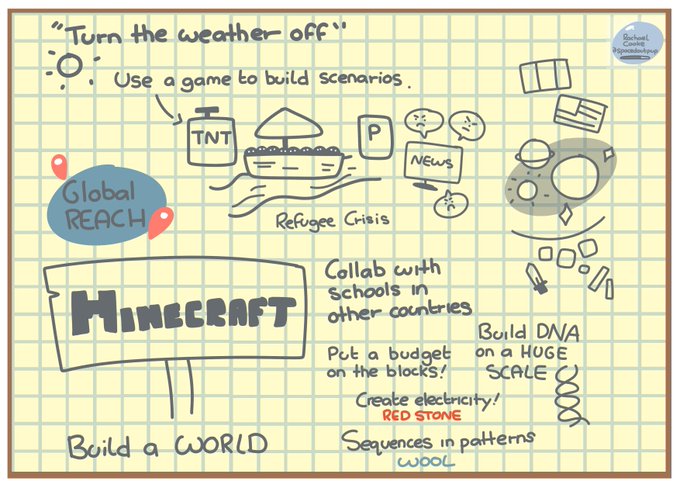 "Turn the weather off"
Rachael
Cooke
@spacedoutpup
Use a game to build scenarios.
TNT
P
NEWS
Global
REACH
Refugee Crisis
MINECRAFT
Collab with
schools in
other countries
Put a budget
on the blocks!
Build DNA
on a HUGE
SCALE
Create electricity!
RED STONE
Build a WORLD
Sequences in patterns
WOOL